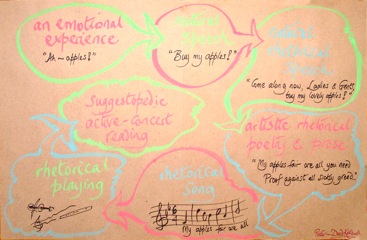 an emotional
experience
"Ah ~ apples!"
natural
speech
"Buy my apples!"
rhetorical
speech
"Come along now, Ladies & Gents,
buy my lovely apples!"
suggestopedic
active-concert
reading
artistic rhetorical
poetry & prose
"My apples fair are all you need
Proof against all sickly greed."
rhetorical
playing
rhetorical
song
My apples fair are all